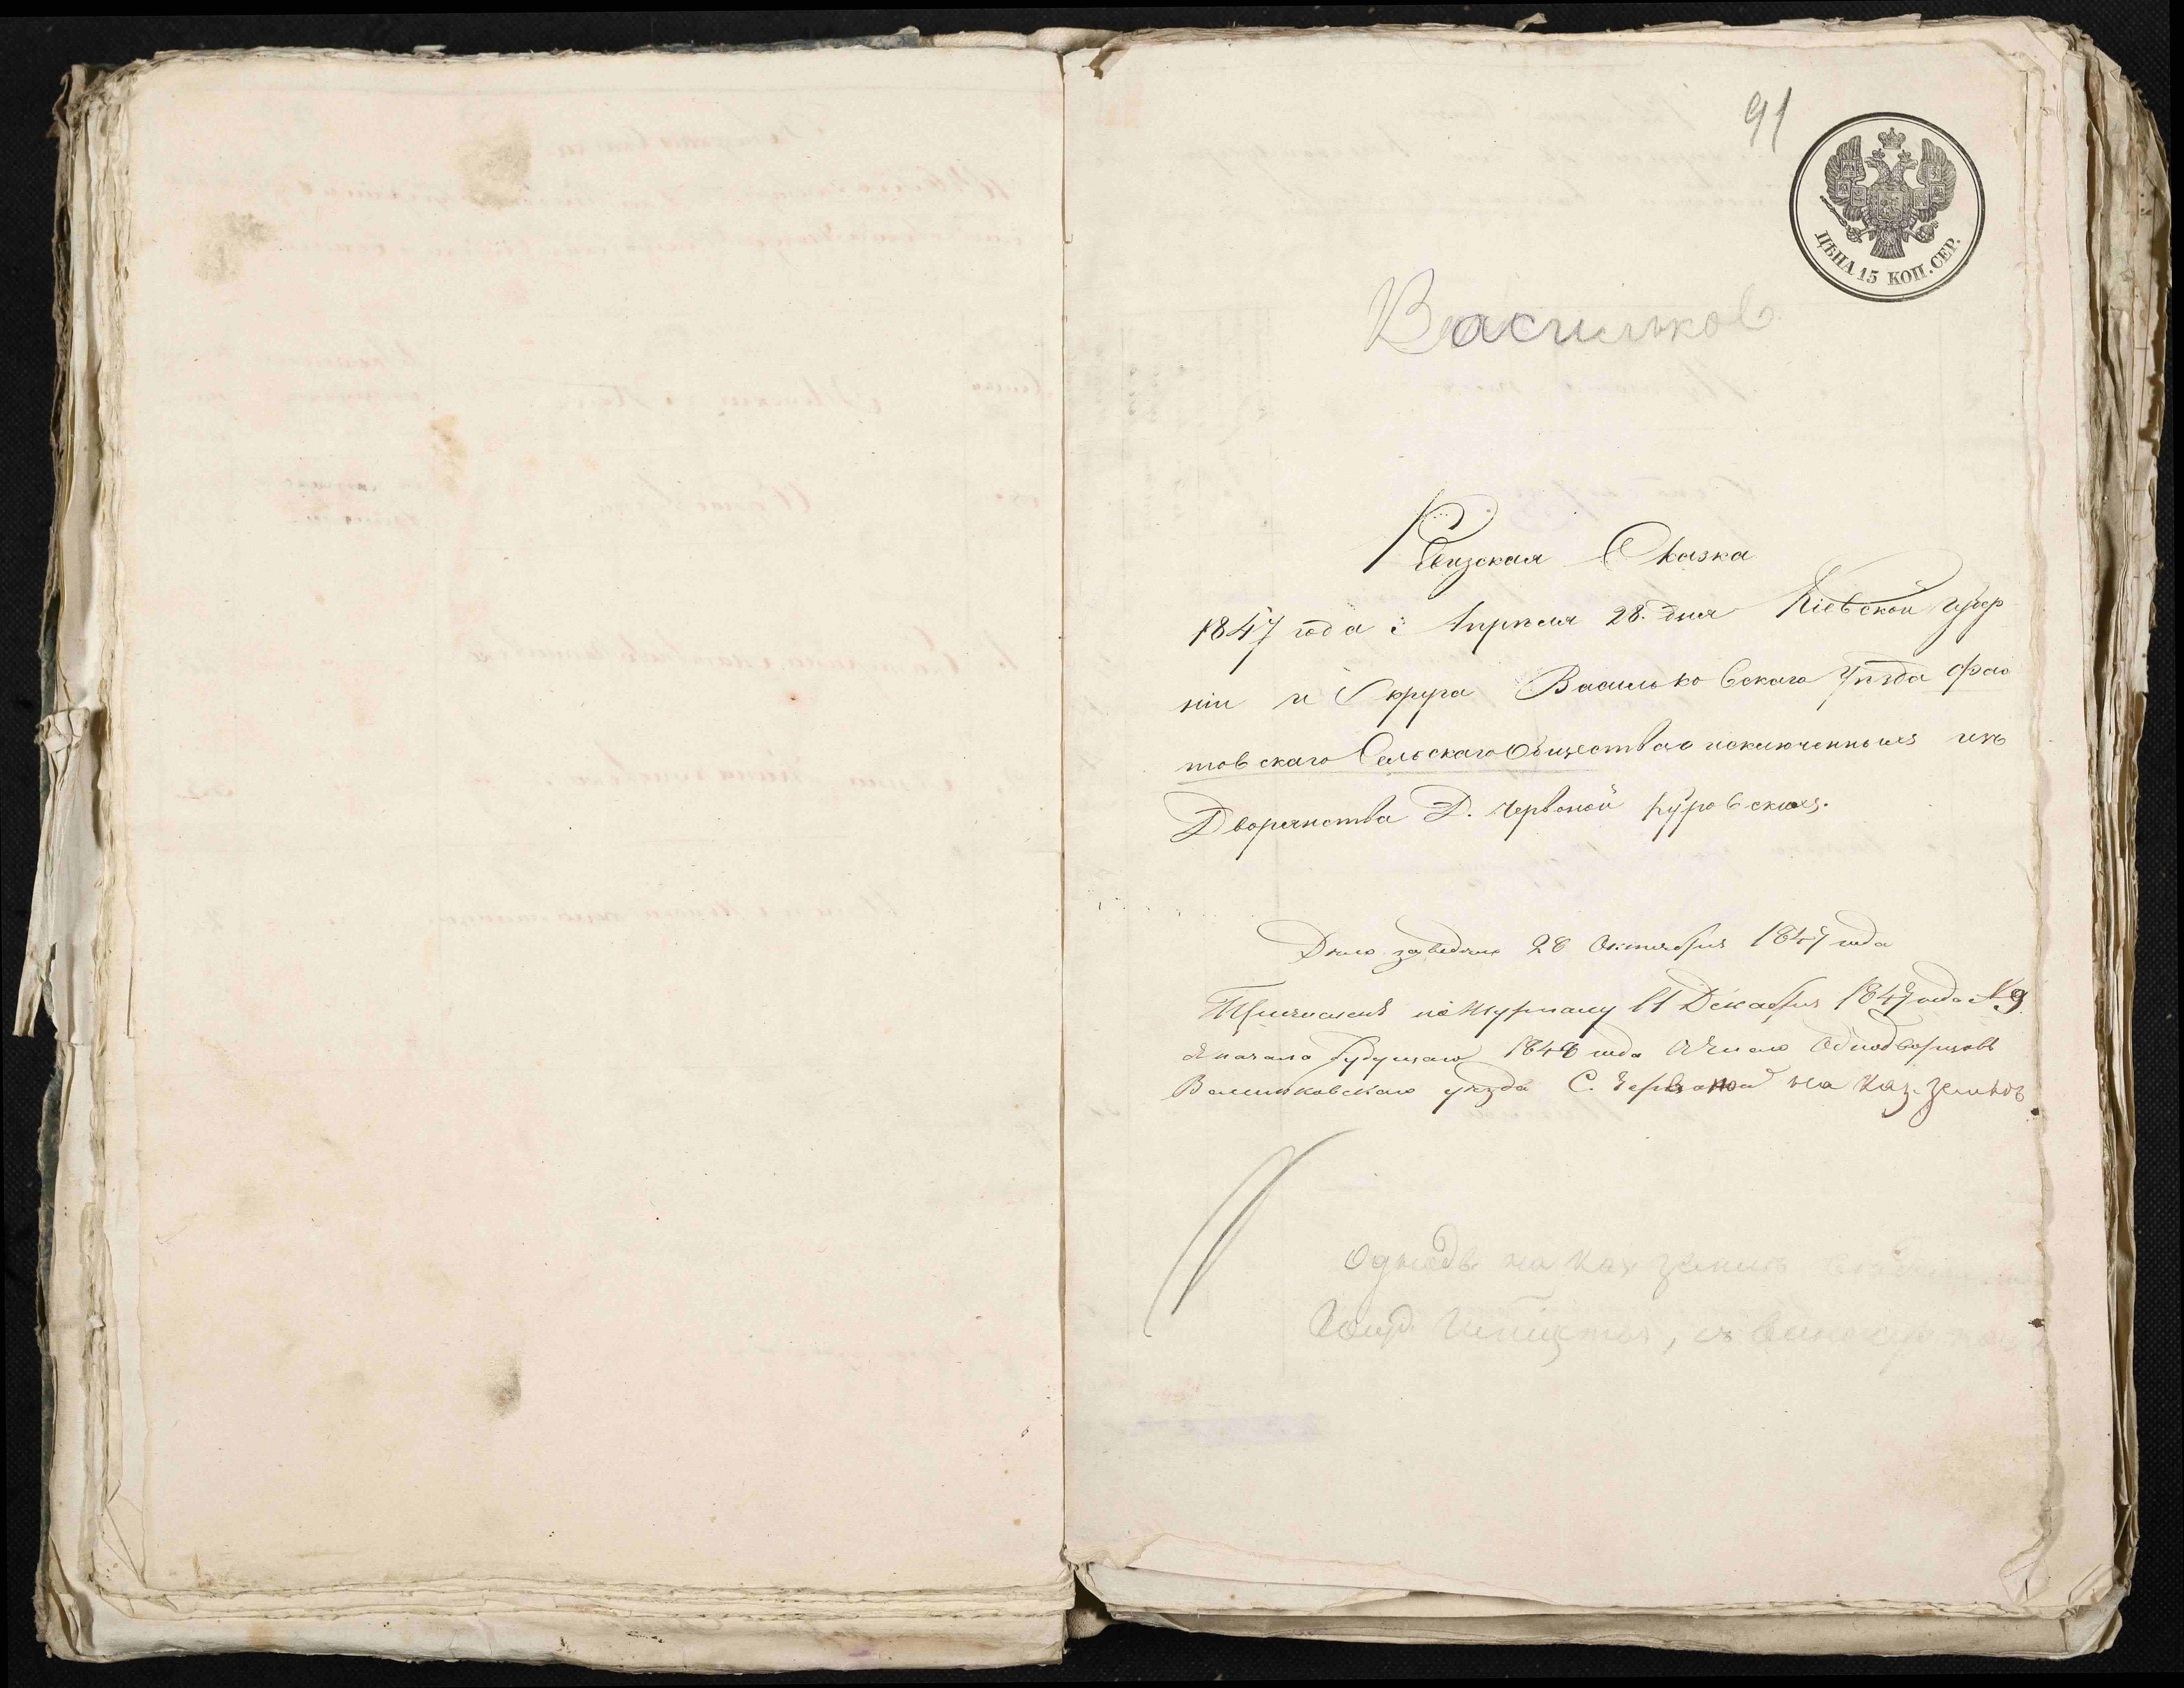 91
ЦѢНА 15 КОП. СЕР.
Васильков
Ревизская Сказка
1847 года Апрѣля 28. дня Кіевской Губер
ніи и Округа Васильковскаго Уѣзда Фас
товскаго Сельскаго Общества о исключенныхъ изъ
Дворянства Д. Червоной Куровскихъ.
Дѣло заведено 28 Октября 1847 года
Причислен по Журналу 11 Декабря 1847 года №9
с начала будущаго 1848 года в число Однодворцовъ
Васильковскаго уѣзда С. Червоной на каз. землѣ
Однодв на каз землѣ